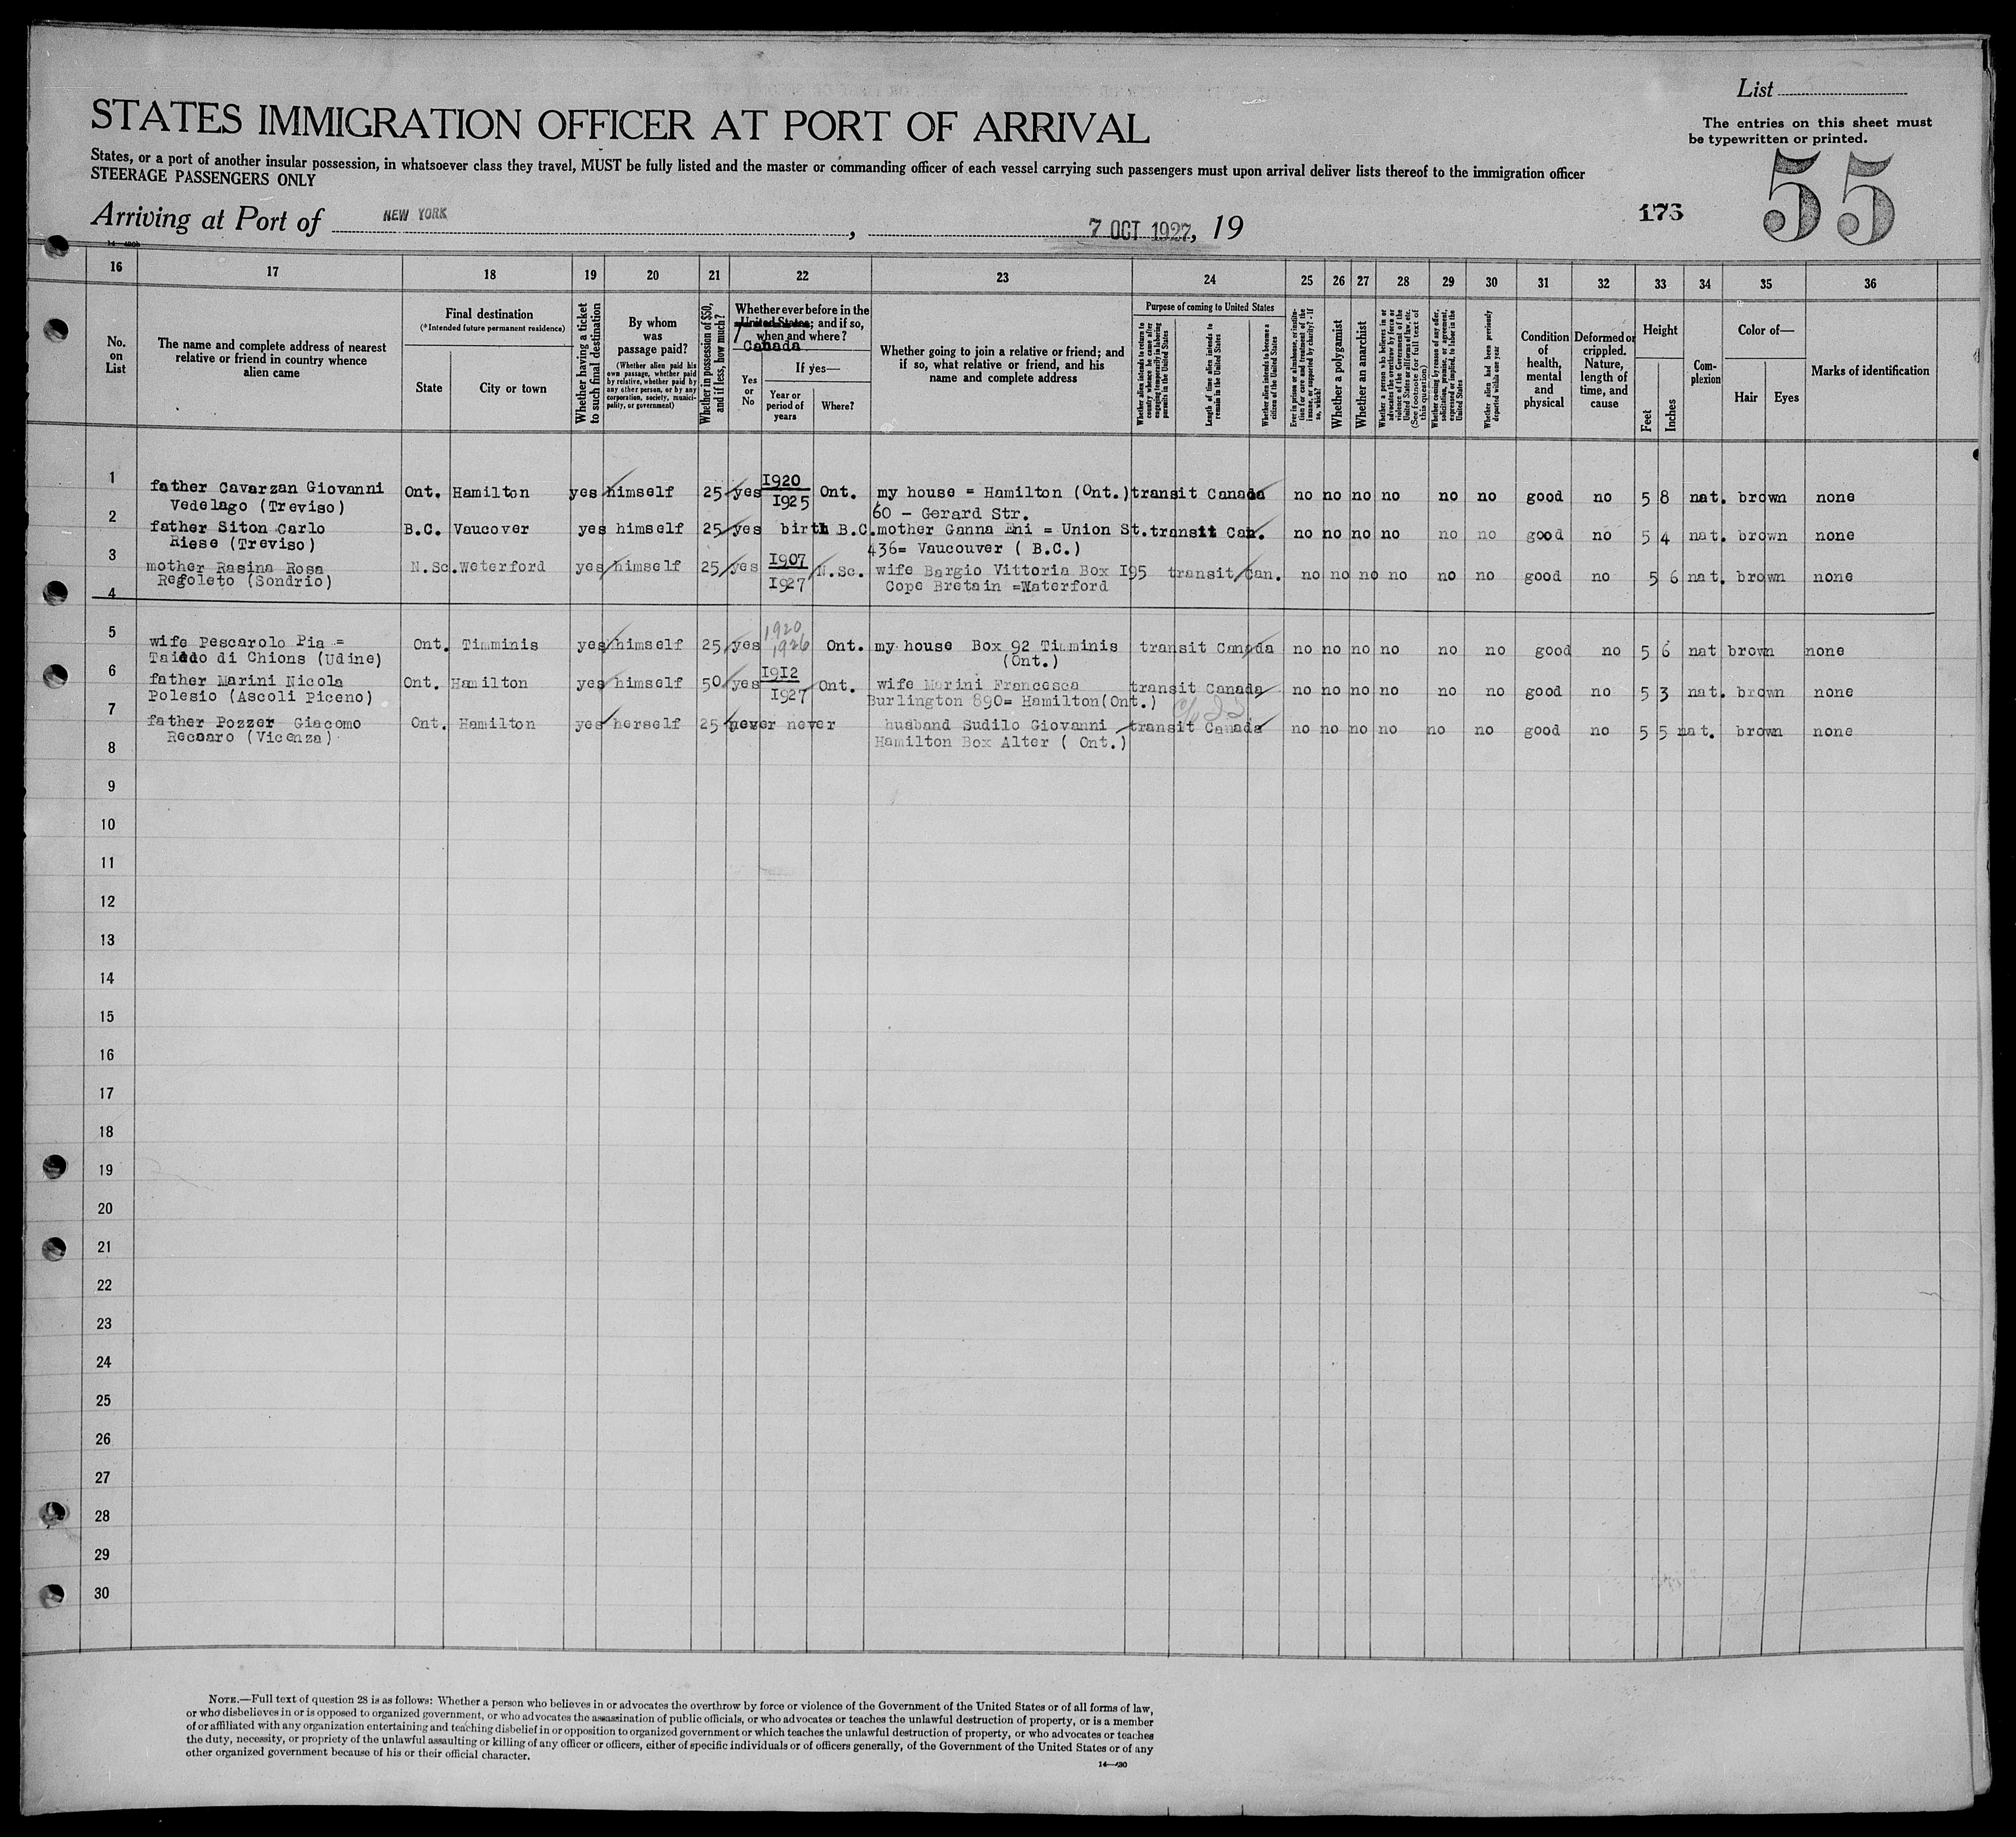 List
The entries on this sheet must
be typewritten or printed.
STATES IMMIGRATION OFFICER AT PORT OF ARRIVAL
States, or a port of another insular possession, in whatsoever class they travel, MUST be fully listed and the master or commanding officer of each vessel carrying such passengers must upon arrival deliver lists thereof to the immigration officer
STEERAGE PASSENGERS ONLY
55
175
Arriving at Port of NEW YORK, 7 OCT 1927, 19
16 17 18 19 20 21 22 23 24 25 26 27 28 29 30 31 32 33 34 35 36
No. on List
The name and complete address of nearest
relative or friend in country whence
alien came
Final destination
(*Intended future permanent residence)
State
City or town
Whether having a ticket
to such final destination
By whom
was
passage paid?
(Whether alien paid his
own passage, whether paid
by relative, whether paid by
any other person, or by any
corporation, society, munici-
pality, or government)
Whether in possession of $50,
and if less, how much?
Whether ever before in the
United States; and if so,
when and where?
Canada
Yes or No
If yes—
Year or
period of
years
Where?
Whether going to join a relative or friend; and
if so, what relative or friend, and his
name and complete address
Purpose of coming to United States
Whether alien intends to return to
country whence he came after
engaging temporarily in laboring
pursuits in the United States
Length of time alien intends to
remain in the United States
Whether alien intends to become a
citizen of the United States
Ever in prison or almshouse, or institu-
tion for care and treatment of the
insane, or supported by charity? If
so, which?
Whether a polygamist
Whether an anarchist
Whether a person who believes in or
advocates the overthrow by force or
violence of the Government of the
United States or all forms of law, etc.
(See footnote for full text of
this question)
Whether coming by reason of any offer,
solicitation, promise, or agreement,
expressed or implied, to labor in the
United States
Whether alien had been previously
deported within one year
Condition
of
health,
mental
and
physical
Deformed or
crippled.
Nature,
length of
time, and
cause
Height
Feet
Inches
Com-
plexion
Color of—
Hair
Eyes
Marks of identification
1 father Cavarzan Giovanni Ont. Hamilton yes himself 25 yes 1920 1925 Ont. my house = Hamilton (Ont.) transit Canada no no no no no no good no 5 8 nat. brown none
Vedelago (Treviso) 60 - Gerard Str.
2 father Siton Carlo B.C. Vaucover yes himself 25 yes birth B.C. mother Ganna Eni = Union St. transit Can. no no no no no no good no 5 4 nat. brown none
Riese (Treviso) 436= Vaucouver ( B.C.)
3 mother Rasina Rosa N.Sc. Weterford yes himself 25 yes 1907 1927 N.Sc. wife Bargio Vittoria Box 195 transit Can. no no no no no no good no 5 6 nat. brown none
Regoleto (Sondrio) Cope Bretain =Waterford
4
5 wife Pescarolo Pia = Ont. Timminis yes himself 25 yes 1920 1926 Ont. my house Box 92 Timminis transit Canada no no no no no no good no 5 6 nat brown none
Taiedo di Chions (Udine) (Ont.)
6 father Marini Nicola Ont. Hamilton yes himself 50 yes 1912 1927 Ont. wife Marini Francesca transit Canada no no no no no no good no 5 3 nat. brown none
Polesio (Ascoli Piceno) Burlington 890= Hamilton(Ont.)
7 father Pozzer Giacomo Ont. Hamilton yes herself 25 never never husband Sudilo Giovanni transit Canada no no no no no no good no 5 5 nat. brown none
Recoaro (Vicenza) Hamilton Box Alter ( Ont.)
8
9
10
11
12
13
14
15
16
17
18
19
20
21
22
23
24
25
26
27
28
29
30
NOTE.—Full text of question 28 is as follows: Whether a person who believes in or advocates the overthrow by force or violence of the Government of the United States or of all forms of law,
or who disbelieves in or is opposed to organized government, or who advocates the assassination of public officials, or who advocates or teaches the unlawful destruction of property, or is a member
of or affiliated with any organization entertaining and teaching disbelief in or opposition to organized government or which teaches the unlawful destruction of property, or who advocates or teaches
the duty, necessity, or propriety of the unlawful assaulting or killing of any officer or officers, either of specific individuals or of officers generally, of the Government of the United States or of any
other organized government because of his or their official character.